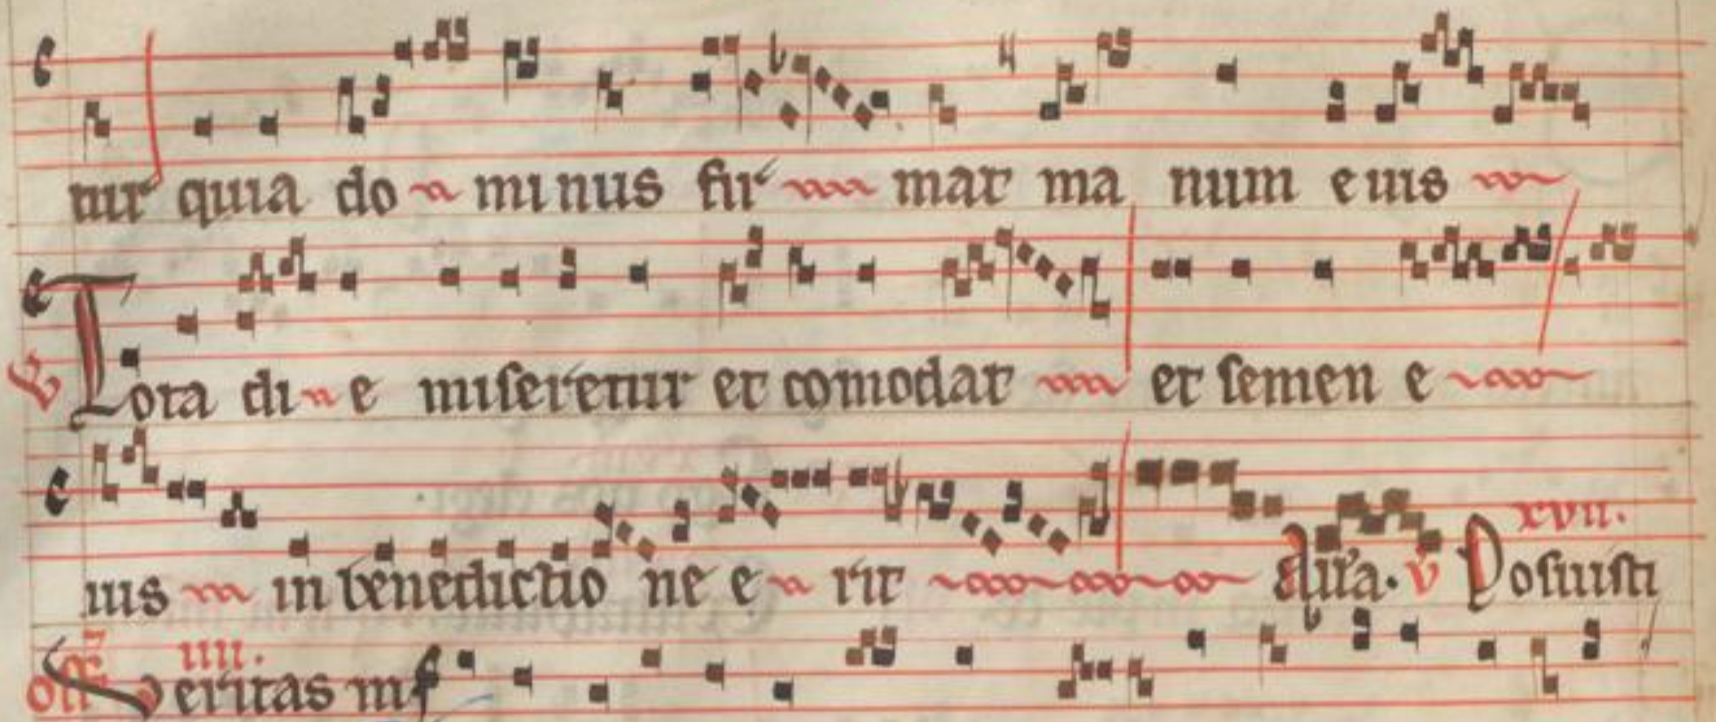 tur quia do minus fir mat ma num eius
V Tota di e miseretur et comodat et semen e
ius in benedictio ne e rit Alla. V Posuisti xvii.
off Veritas m iiii.